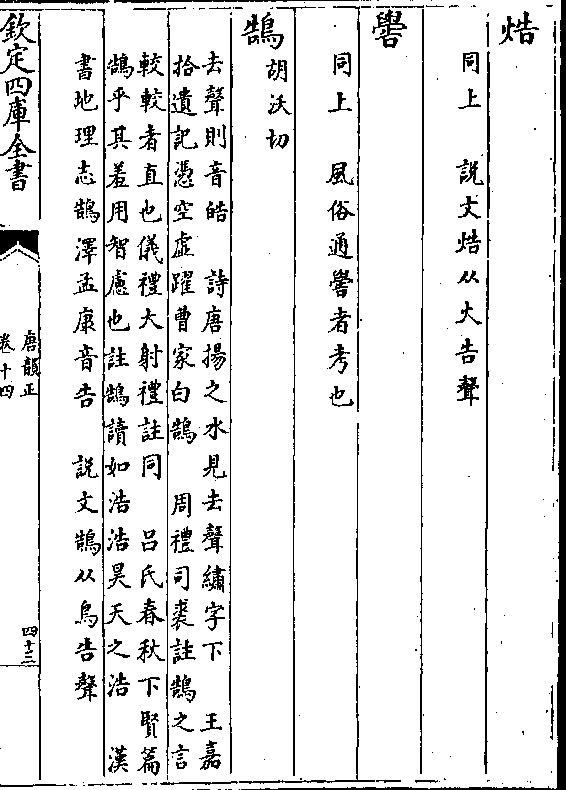 焅
同上　說文焅从火告聲
嚳
同上　風俗通嚳者考也
鵠
胡沃切
去聲則音皓　詩唐揚之水見去聲繡字下　王嘉
拾遺記憑空虛躍曹家白鵠　周禮司裘註鵠之言
較較者直也儀禮大射禮註同　呂氏春秋下賢篇
鵠乎其羞用智慮也註鵠讀如浩浩昊天之浩　漢
書地理志鵠澤孟康音告　說文鵠从鳥告聲
欽定四庫全書
唐韻正
卷十四
四十三